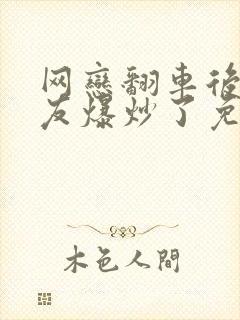 网戀翻車後
友爆炒了免
木色人間